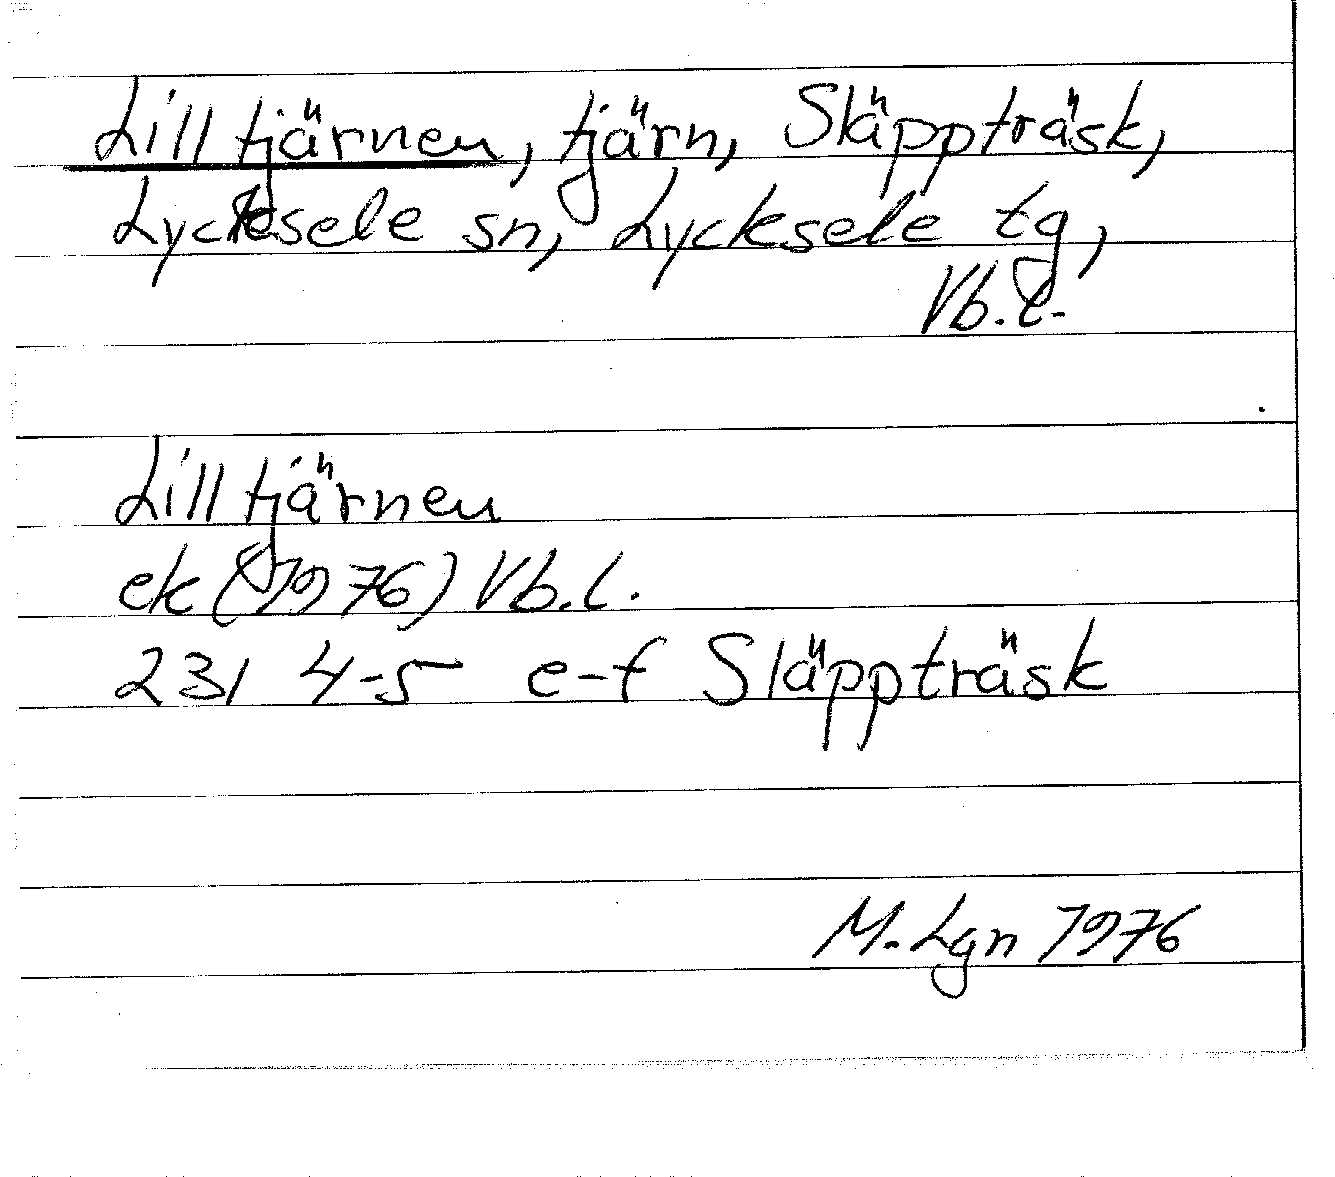 Lilltjärnen, tjärn, Släppträsk,
Lycksele sn, Lycksele tg,
Vb.l.
Lilltjärnen
ek (1976) Vb.l.
231 4-5 e-f Släppträsk
M. Lgn 1976